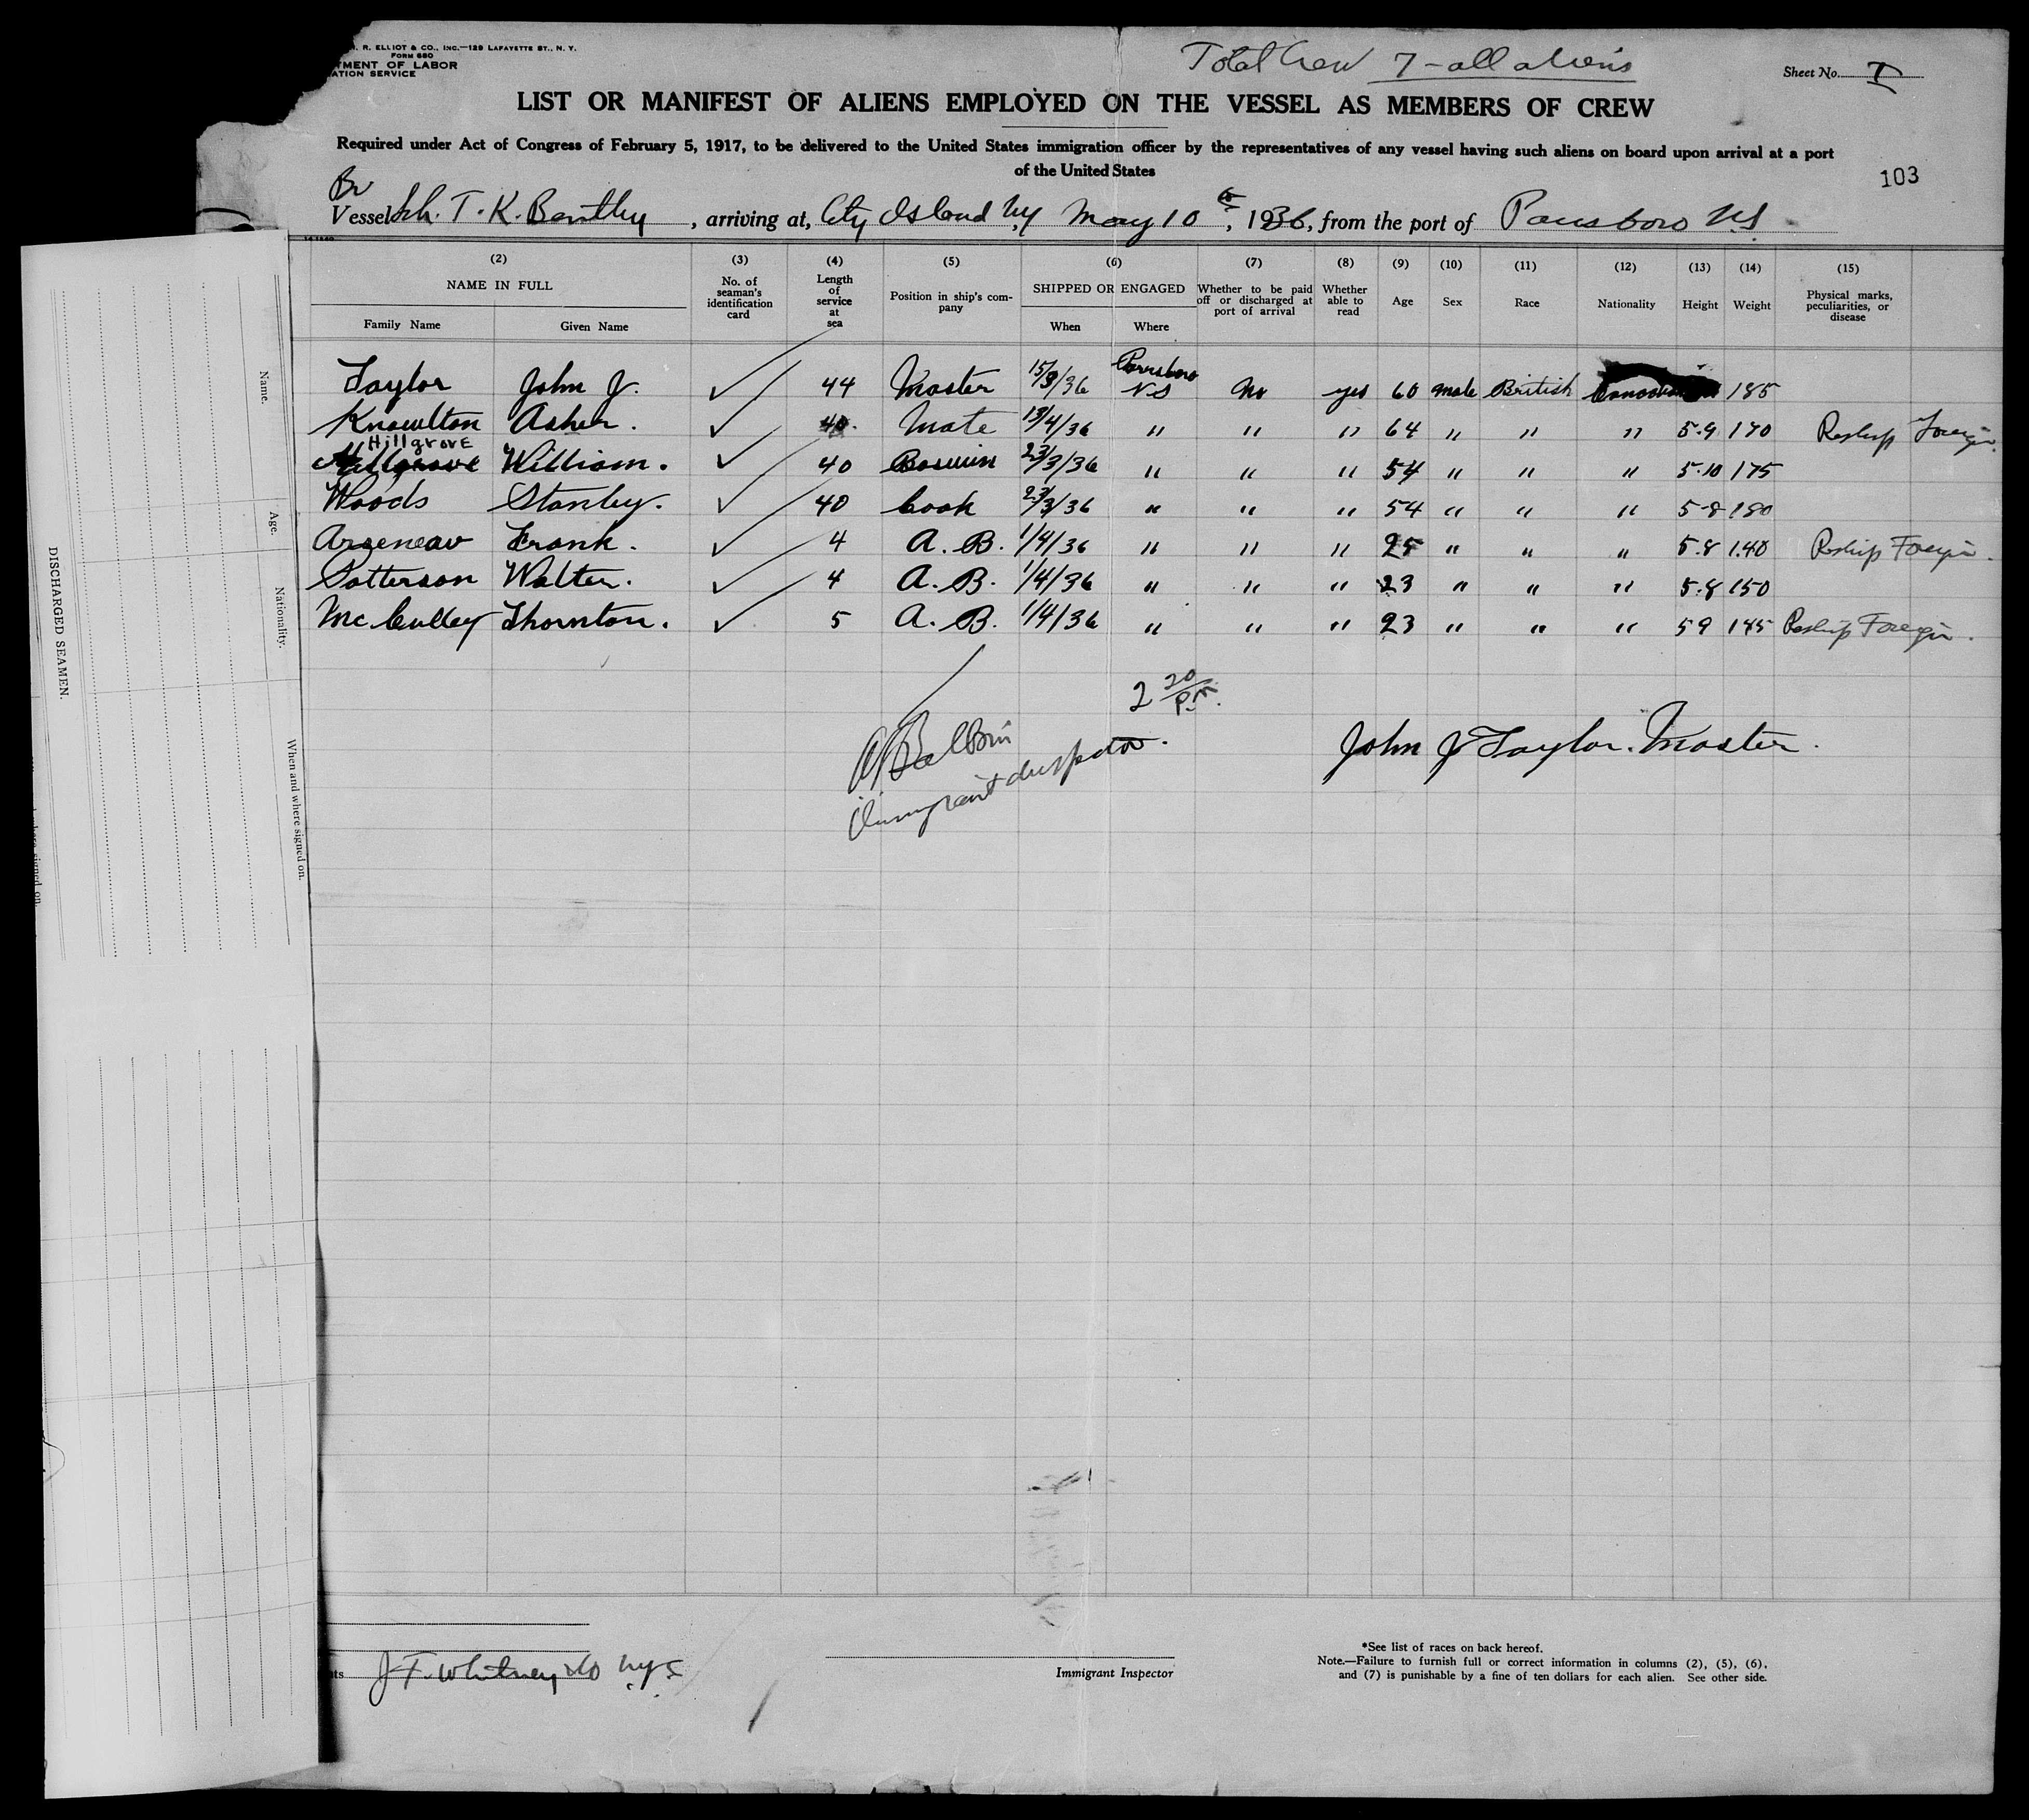 R. ELLIOT & CO., INC.—129 LAFAYETTE ST., N. Y.
FORM 680
TMENT OF LABOR
ATION SERVICE
Total Crew 7 - all aliens
Sheet No. I
LIST OR MANIFEST OF ALIENS EMPLOYED ON THE VESSEL AS MEMBERS OF CREW
Required under Act of Congress of February 5, 1917, to be delivered to the United States immigration officer by the representatives of any vessel having such aliens on board upon arrival at a port
of the United States
103
Br
Vessel Sch. T. K. Bentley, arriving at, City Island N.Y. May 10th, 1936, from the port of Parrsboro N.S.
(2) (3) (4) (5) (6) (7) (8) (9) (10) (11) (12) (13) (14) (15)
NAME IN FULL
Family Name Given Name
No. of seaman's identification card
Length of service at sea
Position in ship's company
SHIPPED OR ENGAGED
When Where
Whether to be paid off or discharged at port of arrival
Whether able to read
Age
Sex
Race
Nationality
Height
Weight
Physical marks, peculiarities, or disease
Taylor John J. ✓ 44 Master 15/3/36 Parrsboro NS No yes 60 male British Canadian 185
Knowlton Asher. ✓ 40. Mate 13/4/36 " " " 64 " " " 5.9 170 Reship Foreign.
Hillgrove
Hillgrove William. ✓ 40 Boswin 23/3/36 " " " 54 " " " 5.10 175
Woods Stanley. ✓ 40 Cook 23/3/36 " " " 54 " " " 5-8 180
Arseneav Frank. ✓ 4 A. B. 1/4/36 " " " 25 " " " 5.8 140 Reship Foreign.
Patterson Walter. ✓ 4 A. B. 1/4/36 " " " 23 " " " 5.8 150
McCulley Thornton. ✓ 5 A. B. 1/4/36 " " " 23 " " " 5 9 145 Reship Foreign.
2 20/P.M.
Balbin
Immigrant Inspector.
John J Taylor. Master.
DISCHARGED SEAMEN.
Name.
Age.
Nationality.
When and where signed on.
J. F. Whitney & Co N.Y.C.
Immigrant Inspector
*See list of races on back hereof.
Note.—Failure to furnish full or correct information in columns (2), (5), (6),
and (7) is punishable by a fine of ten dollars for each alien. See other side.